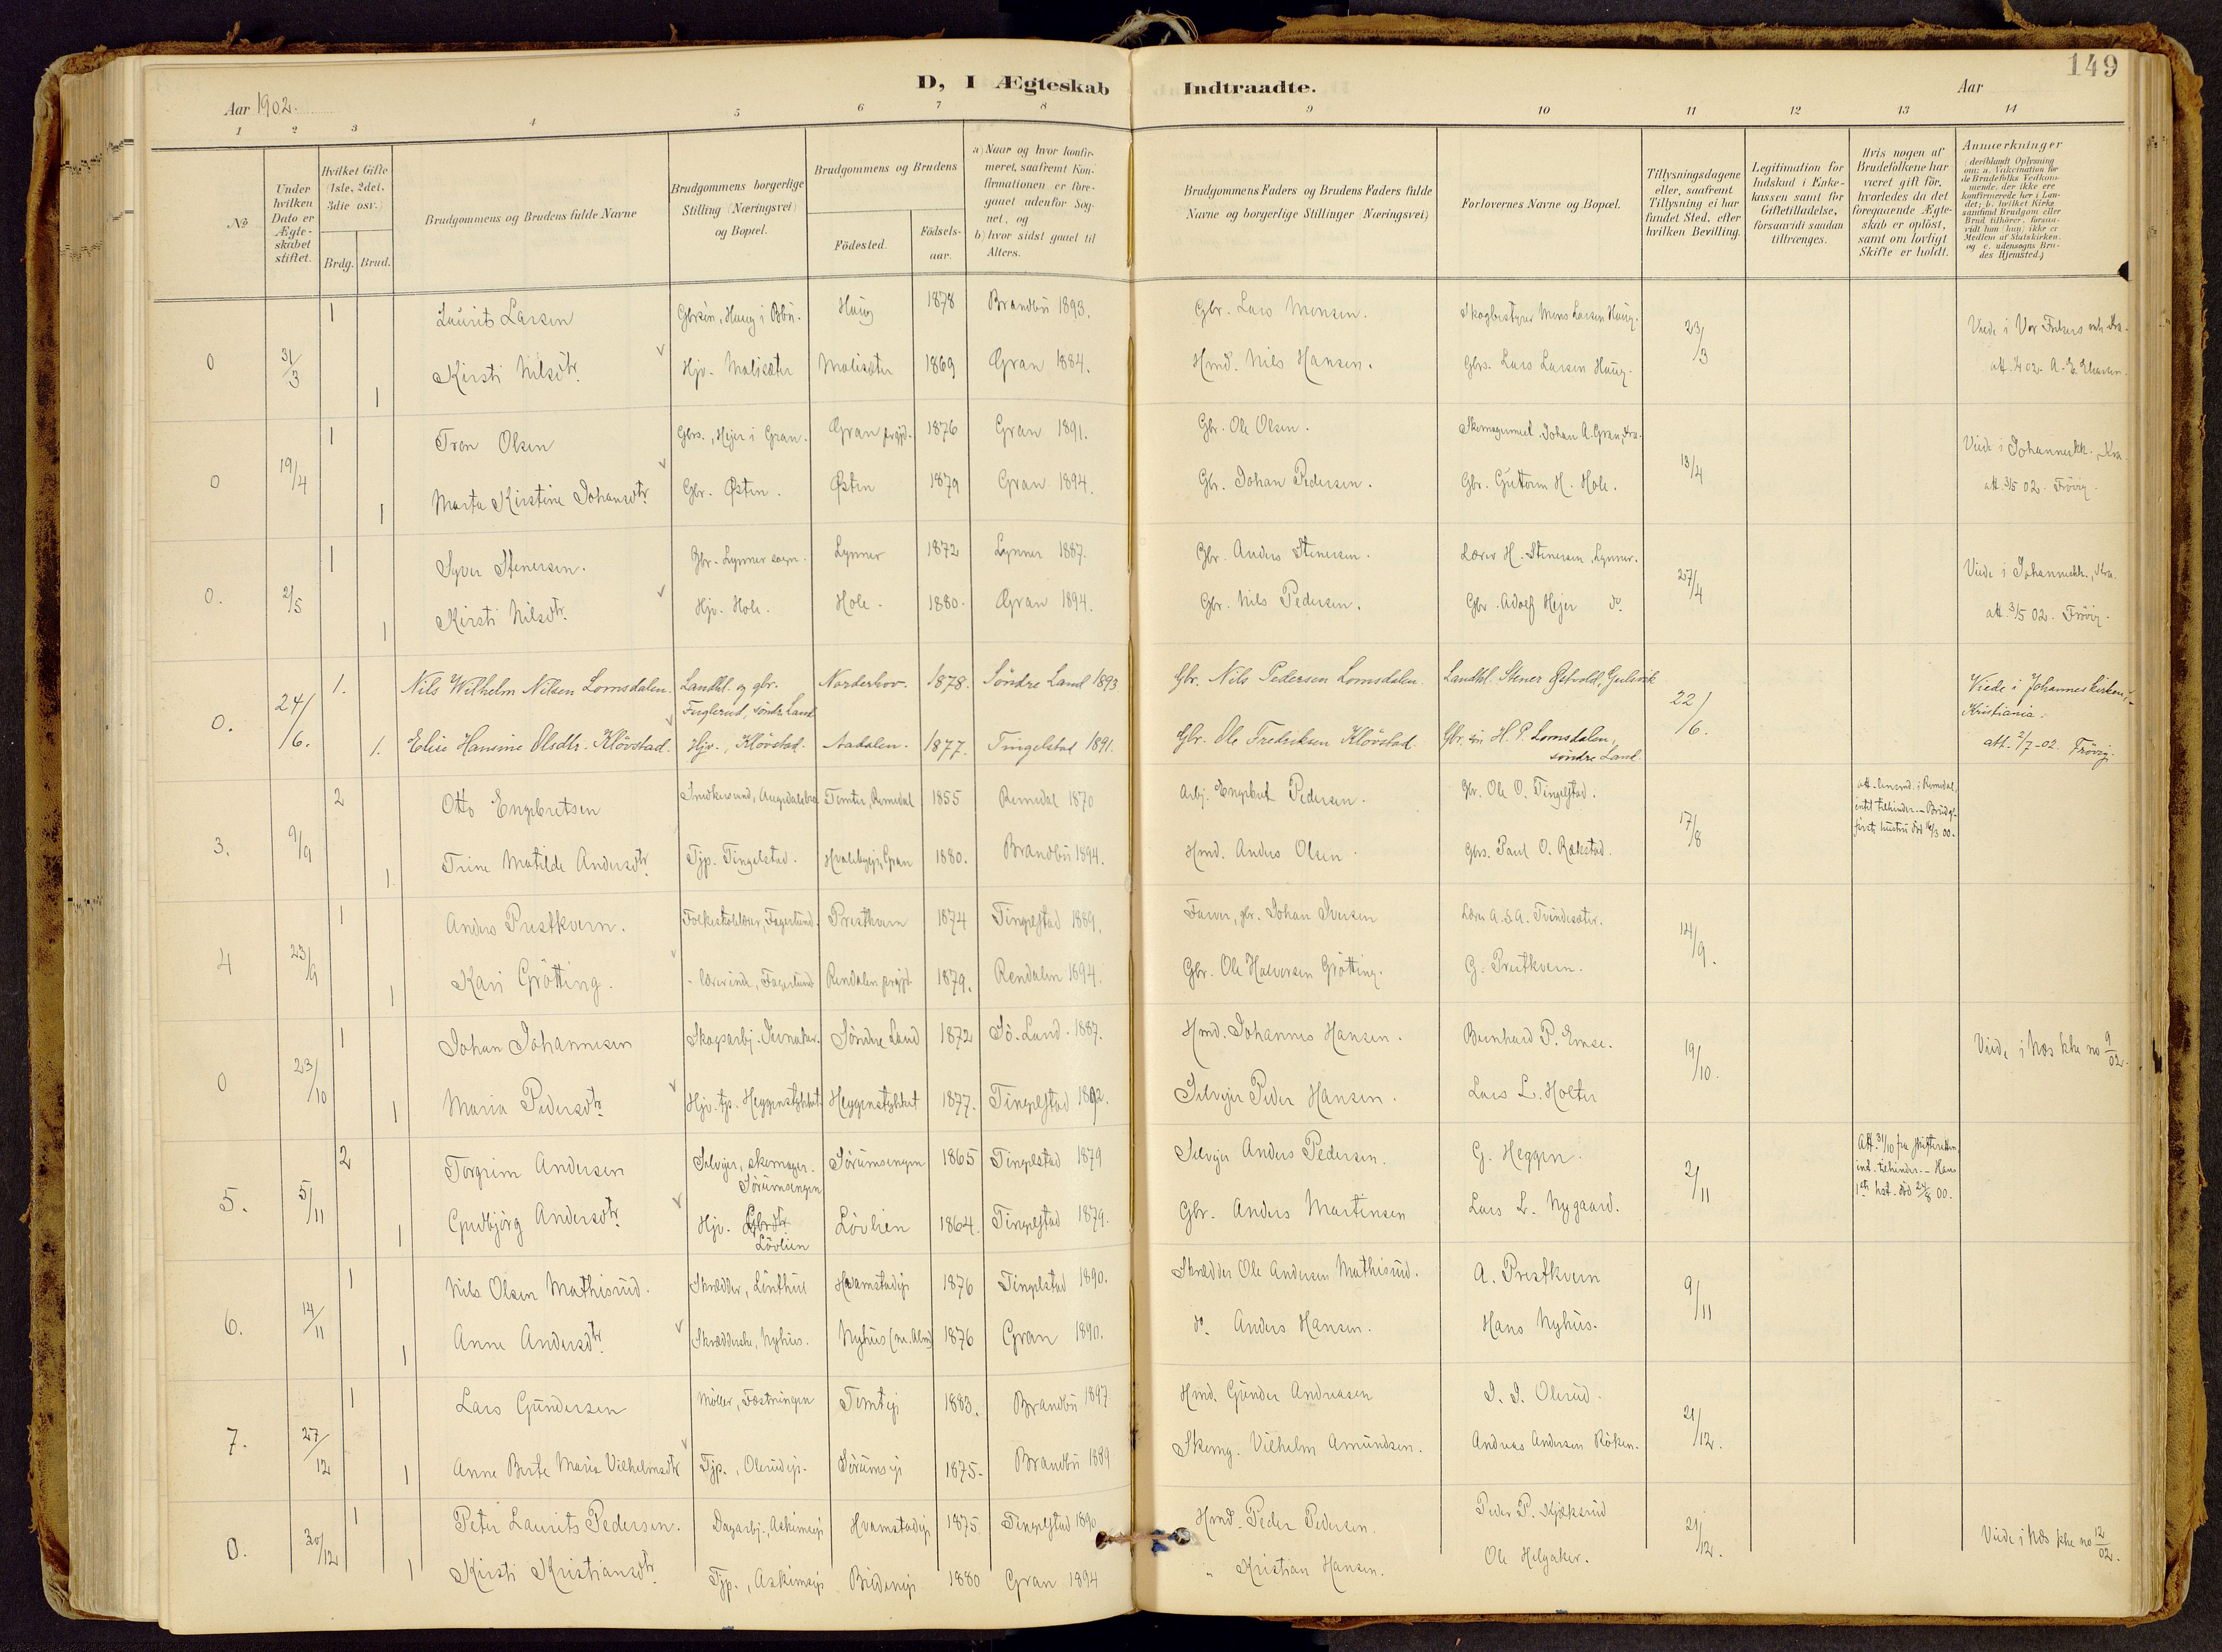 149
D, I Ægteskab Indtraadte.
Aar 1902. Aar
1 2 3 4 5 6 7 8 9 10 11 12 13 14
No
Under hvilken Dato er Ægteskabet stiftet.
Hvilket Gifte (1ste, 2det, 3die osv.)
Brdg. Brud.
Brudgommens og Brudens fulde Navne
Brudgommens borgerlige Stilling (Næringsvei) og Bopæl.
Brudgommens og Brudens
Födested. Födselsaar.
a) Naar og hvor konfirmeret, saafremt Konfirmationen er foregaaet udenfor Sognet, og
b) hvor sidst gaaet til Alters.
Brudgommens Faders og Brudens Faders fulde Navne og borgerlige Stillinger (Næringsvei)
Forlovernes Navne og Bopæl.
Tillysningsdagene eller, saafremt Tillysning ei har fundet Sted, efter hvilken Bevilling.
Legitimation for Indskud i Enkekassen samt for Giftetilladelse, forsaavidt saadan tiltrænges.
Hvis nogen af Brudefolkene har været gift för, hvorledes da det foregaaende Ægteskab er oplöst, samt om lovligt Skifte er holdt.
Anmærkninger
(deriblandt Oplysning om: a. Vakcination for de Brudefolks Vedkommende, der ikke ere konfirmerede her i Landet; b. hvilket Kirkesamfund Brudgom eller Brud tilhörer, forsaavidt han (hun) ikke er Medlem af Statskirken, og c. udensogns Brudes Hjemsted.)
0 31/3 1 Laurits Larsen Gbrsön, Haug i Bbu. Haug 1878 Brandbu 1893. Gbr. Lars Monsen. Skogbestyrer Mons Larsen Haug. 23/3 Viede i Vor Frelsers
1 Kirsti Nilsdtr. Hjv. Molisæter Molisæter 1869 Gran 1884. Hmd. Nils Hansen. Gbrs. Lars Larsen Haug.
0 19/4 1 Tron Olsen Gbrs., Hejer i Gran. Gran prgjd. 1876 Gran 1891. Gbr. Ole Olsen. Johan A. Gran, Kra. 13/4 Viede i Johanneskk. Kra.
1 Marta Kirstine Johansdtr. Gbr. Østen. Østen 1879 Gran 1894. Gbr. Johan Pedersen. Gbr. Guttorm H. Hole. att. 3/5 02. Frövig.
0. 2/5 1 Syver Stenersen. Gbr. Lynner sogn. Lynner 1872 Lynner 1887. Gbr. Anders Stenersen. Lærer H. Stenersen, Lynner. 27/4 Viede i Johanneskk., Kra.
1 Kirsti Nilsdtr. Hjv. Hole. Hole. 1880. Gran 1894. Gbr. Nils Pedersen. Gbr. Adolf Hejer do. att. 3/5 02. Frövig.
0. 24/6. 1. Nils Wilhelm Nilsen Lomsdalen. Landhl. og gbr. Fuglerud, söndr. Land Norderhov. 1878. Söndre Land 1893 Gbr. Nils Pedersen Lomsdalen. Landhl. Stener Østvold, Gulsvik 22/6. Viede i Johanneskirken, Kristiania.
1. Elise Hansine Olsdtr. Klövstad. Hjv., Klövstad. Aadalen. 1877. Tingelstad 1891. Gbr. Ole Fredriksen Klövstad. Gbr. sön H. P. Lomsdalen, söndre Land. att. 2/7-02. Frövig.
3. 9/9 2 Otto Engebretsen Tomter, Romedal 1855 Romedal 1870 Arbj. Engebret Pedersen. Gbr. Ole O. Tingelstad. 17/8 att. lensmd. i Romedal, intet tilhinder. - Brudg. første hustru död 16/3 00.
1. Trine Matilde Andersdtr. Tjp. Tingelstad. Hvalebyeje, Gran 1880. Brandbu 1894. Hmd. Anders Olsen. Gbrs. Paul O. Rækstad.
4 23/9 1 Anders Prestkvern. Folkeskolelærer, Fagerlund. Prestkvern 1874 Tingelstad 1889. Farver, gbr. Johan Iversen Lærer A. S. A. Tvindesæter. 14/9.
1 Kari Grötting. - lærerinde, Fagerlund Rendalen prgjd. 1879. Rendalen 1894. Gbr. Ole Halvorsen Grötting. G. Prestkvern.
0 23/10 1 Johan Johannesen Skogsarbj. Söndre Land 1872 Sö. Land. 1887. Hmd. Johannes Hansen. Bernhard P. Emse. 19/10. Viede i Næs kke no 9/02.
1 Maria Pedersdtr. Hjv. tjp. Heggenstykket Heggenstykket 1877. Tingelstad 1892. Selvejer Peder Hansen. Lars L. Holter
5. 5/11 2 Torgrim Andersen Selvejer, skomager. Sörumsengen Sörumsengen 1865 Tingelstad 1879 Selvejer Anders Pedersen. G. Heggen. 2/11 Att. 31/10 fra skifteretten, int. tilhinder. - Hans 1ste hst. död 24/8 00.
1 Gudbjörg Andersdtr. Hjv. Gbrdtr. Lövlien Lövlien 1864. Tingelstad 1879. Gbr. Anders Martinsen Lars L. Nygaard.
6. 14/11 1 Nils Olsen Mathisrud. Skrædder, Linthue Hvamstadeje 1876 Tingelstad 1890. Skrædder Ole Andersen Mathisrud. A. Prestkvern 9/11
1 Anne Andersdtr. Skrædderske, Nyhus. Nyhus 1876 Gran 1890. do. Anders Hansen. Hans Nyhus.
7. 27/12 1 Lars Gundersen Möller, Fæstningen Tomteje 1883. Brandbu 1897 Hmd. Gunder Andreasen J. J. Olerud. 21/12.
1 Anne Berte Maria Vilhelmsdtr Tjp., Olerudeje. Sörumseje 1875. Brandbu 1889 Skomg. Vilhelm Amundsen. Andreas Andersen Röken.
0. 30/12 1 Peter Laurits Pedersen. Dagarbj., Askimeje Hvamstadeje 1875 Tingelstad 1890 Hmd. Peder Pedersen. Peder P. Kjæksrud 21/12. Viede i Næs kke no 12/02.
1 Kirsti Kristiansdtr. Tjp., Askimeje 1880 Gran 1894 " Kristian Hansen. Ole Helgaker.